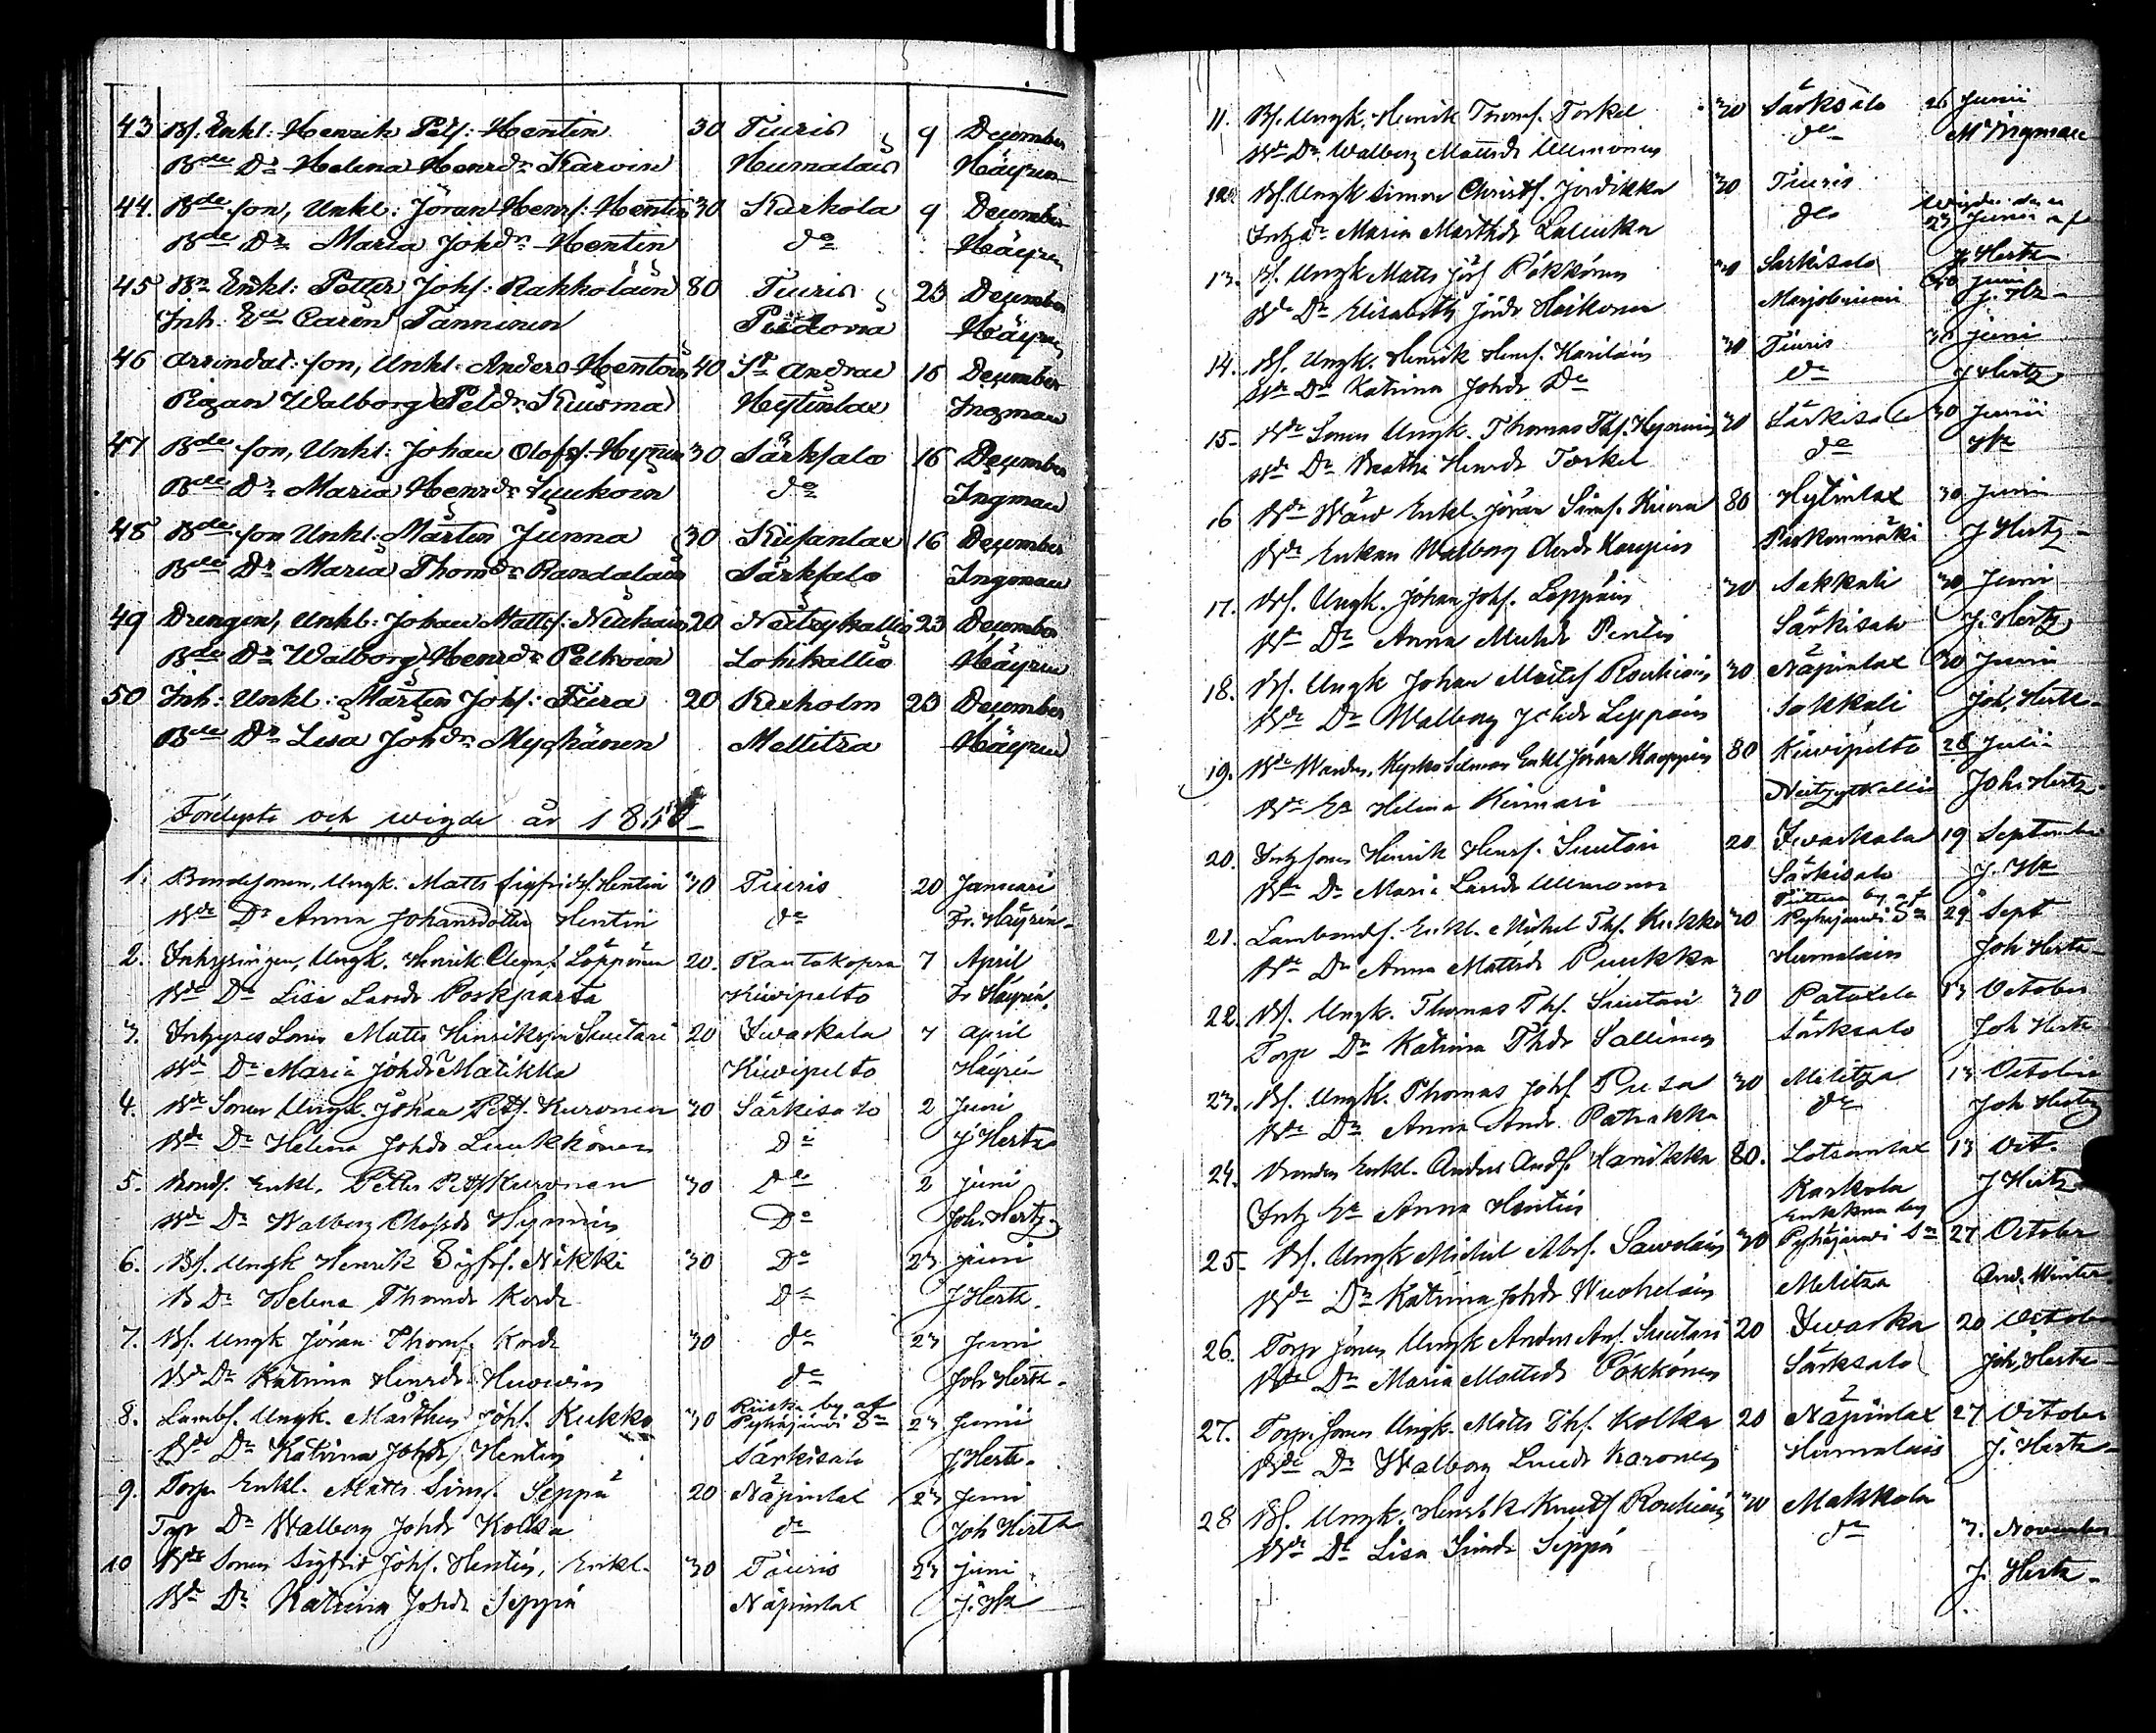 43 Bs. Enkl: Henrik Pels: Hentin 30 Tiuris 9 December
Bde Dr Helena Henrdr Karvin Humalais Häyren
44. Bde son, Unkl: Jöran Henrs: Hentin 30 Karkola 9 December
Bde Dr Maria Johdr Hentin do Häyren
45 Bn Enkl: Petter Johs: Rahkolain 80 Tiuris 23 December
Inh. Ea Caren Tanninen Häyren
46 son, Unkl: Anders Hentoin 40 St Andrae 16 December
Pigan Walborg Petdr Kuisma Heytinlax Ingman
47 Bde son, Unkl: Johan Olofss: Hynnin 30 Särksalo 16 December
Bde Dr Maria Henrdr Luukoin do Ingman
48 Bde son Unkl: Mårten Junna 30 Kiisanlax 16 December
Bde Dr Maria Thomdr Randalain Särksalo Ingman
49 Drengen, Unkl: Johan Matts: Niukain 20 Neitsykallio 23 December
Bde Dr Walborg Henrdr Pelkoin Lohikallio Häyren
50 Inh: Unkl: Mårten Johs: Tiira 20 Kexholm 23 December
Bde Dr Lisa Johdr Myöhänen Mellitza Häyren
Förelyste och wigde år 1850
1. Bondesonen, Ungk. Matts Sigfridss. Hentin 30 Tiuris 20 Januari
Bde Dr Anna Johansdotter Hentin do Fr. Häyrén
2. Inhysingen, Ungk. Henrik Clems. Löppönen 20. Rantakopsa 7 April
Bde Dr Lisa Larsdr Poskparta Kiwipelto Fr Häyrén
3. Inhyses Sonen Matts Hinriksson Suutari 20 Iwaskala 7 April
Bde Dr Maria Johdr Matikka Kiwipelto Häyrén
4. Bde Sonen Ungk. Johan Petts. Kuronen 30 Särkisalo 2 Juni
Bde Dr Helena Johdr Luukkönen Do J Hertz
5. Bonds. Enkl. Petter Petts Kuronen 30 Do 2 Juni
Bde Dr Walborg Olofsdr Hynnin Do Joh. Hertz
6. Bs. Ungk Henrik Sigfrs. Nikki 30 Do 23 Juni
B Dr Helena Thomdr Korde Do J Hertz.
7. Bs. Ungk Jöran Thoms. Korde 30 do 23 Juni
Bde Dr Katrina Henrdr do Joh Hertz.
8. Lambs. Ungk. Mårthen Johs. Kukko 30 by af Pyhäjärvi Sn 23 Junii
Bde Dr Katrina Johdr Hentin Särkisalo J. Hertz.
9. Torp. Enkl. Matts Sims. Seppä 20 Näpinlax 23 Juni
Torp Dr Walborg Johdr Kolka do Joh Hertz
10 Bde Sonen Sigfrid Johs. Hentin, Enkl. 30 Tiuris 23 Juni
Bde Dr Katrina Johdr Seppä Näpinlax J. Hz
11. Bs. Ungk. Henrik Thoms. Torkel 30 Särksalo 26 Junii
Bde Dr Walborg Mattsdr Ullmonen do M Ingman
12. Bs. Ungk Simon Christs. Jordikka 30 Tiuris
Inh Dr Maria Marthdr Lallukka do 23 Junii
13. Bs. Ungk Matts Jörs Pökkönen 30 Sarkisalo J. Hertz
Bde Dr Elisabeth Jördr Heikonen Marjoniemi 30 Juni J. Hz
14. Bs. Ungk. Henrik Henrs. Karilain 30 Tiuris 30 Juni
Bde Dr Katrina Johdr Do do J Hertz
15. Bde Sonen Ungk. Thomas Ths. Hynnin 30 Särkisalo 30 Junii
Bde Dr Beatha Henrdr Torkel do Hz
16 Bde Wäw Enkl. Jöran Sims. 80 Hytinlax 30 Juni
Bde Enkan Walborg Kaupin Pirkonmäki J Hertz
17. Bs. Ungk. Johan Johs. Leppäin 30 Sakkali 30 Juni
Bde Dr Anna Michdr Pentin Särkisalo J. Hertz
18. Bs. Ungk Johan Matts Rouhiain 30 Näpinlax 30 Junii
Bde Dr Walborg Johdr Leppäin Sakkali Joh. Hertz
19. Enkl Jöran Kauppin 80 Kiwipelto 28 Julii
Bde Ea Helena Kinnari Neitzytkallio Joh. Hertz.
20. Inhysonen Henrik Henrs. Suutari 20 Iwaskala 19 September
Bde Dr Maria Larsdr Ullmonen Särkisalo J. Hz
21. Lambonds. Enkl. Michel Ths. Kukko 30 by af Pyhäjärvi Sn 29 Sept
Bde Dr Anna Mattsdr Puukka Humalain Joh Hertz
22. Bs. Ungk. Thomas Ths. Suutari 30 13 October
Torp Dr Katrina Thdr Sallinen Särksalo Joh Hertz
23. Bs. Ungk. Thomas Johs. Pusa 30 Melitza 13 October
Bde Dr Anna Andr. Patrakka do Joh Hertz
24. Bonden Enkl. Anders Ands. Hanikka 80. Lotsanlax 13 Oct.
Inh Ea Anna Hentin Karkola J Hertz
25. Bs. Ungk Michel Abrs. Sawolain 30 by Pyhäjärvi Sn 27 October
Bde Dr Katrina Johdr Wuohelain Melitza And. Winter
26. Torp Sonen Ungk Anders Ans. Suutari 20 Iwaska 20 October
Bde Dr Maria Mattsdr Pökkönen Särksalo Joh, Hertz
27. Torp. Sonen Ungk. Matts Ths. Kolka 20 Näpinlax 27 October
Bde Dr Walborg Karonen Humalais J. Hertz
28 Bs. Ungk. Henrik Knuts Rouhiain 30 Makkola
Bde Dr Lisa Simdr Seppä do 3. November
J. Hertz